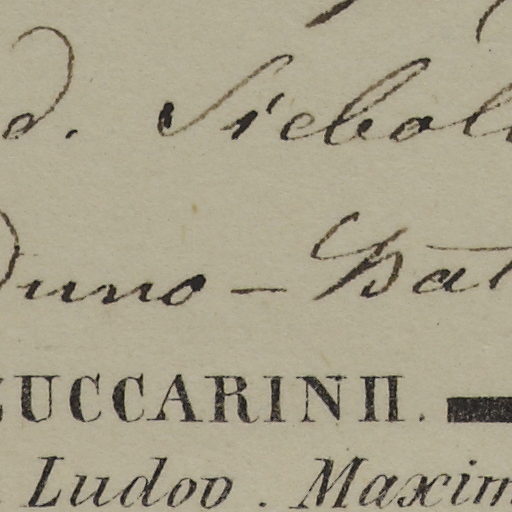 d. Siebol
Duno - Bat
ZUCCARINII.
Ludov. Maxim